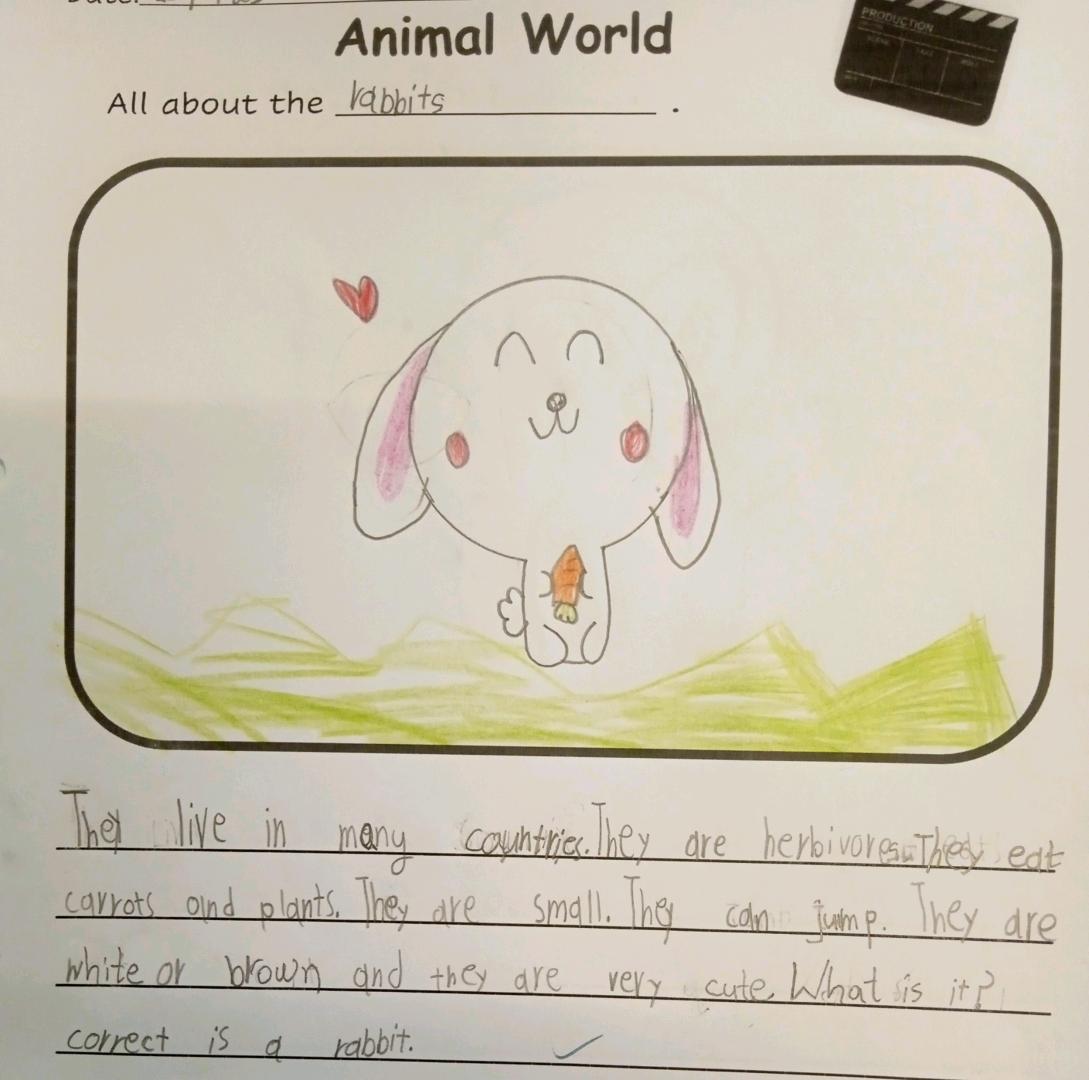 Date:
Animal World
PRODUCTION
SCENE TAKE ROLL
All about the rabbits .
They live in many countries. They are herbivores. They eat
carrots and plants. They are small. They can jump. They are
white or brown and they are very cute. What is it?
correct is a rabbit.